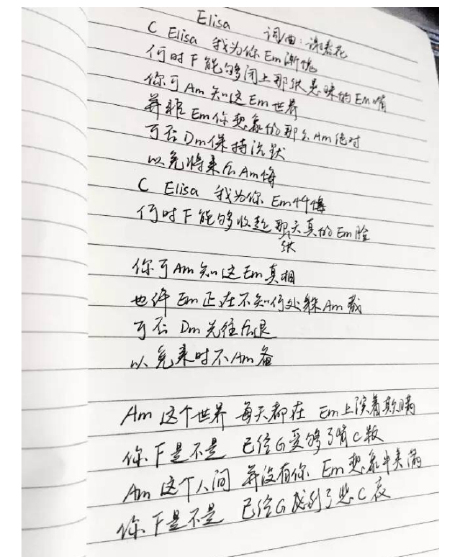 Elisa 词曲:许嵩花
C Elisa 我为你 Em 惭愧
何时 F 能够闭上那张愚昧的 Em 嘴
你可 Am 知这 Em 世界
并非 Em 你想象的那么 Am 绝对
可否 Dm 保持沉默
以免将来后 Am 悔
C Elisa 我为你 Em 忏悔
何时 F 能够收起那张天真的 Em 脸
你可 Am 知这 Em 真相
也许 Em 正在不知何处躲 Am 藏
可否 Dm 先往后退
以免来时不 Am 备
Am 这个世界 每天都在 Em 上演着欺瞒
你 F 是不是 已经 G 受够了 C
Am 这个人间 并没有你 Em 想象中美满
你 F 是不是 已经 G 感到了 C